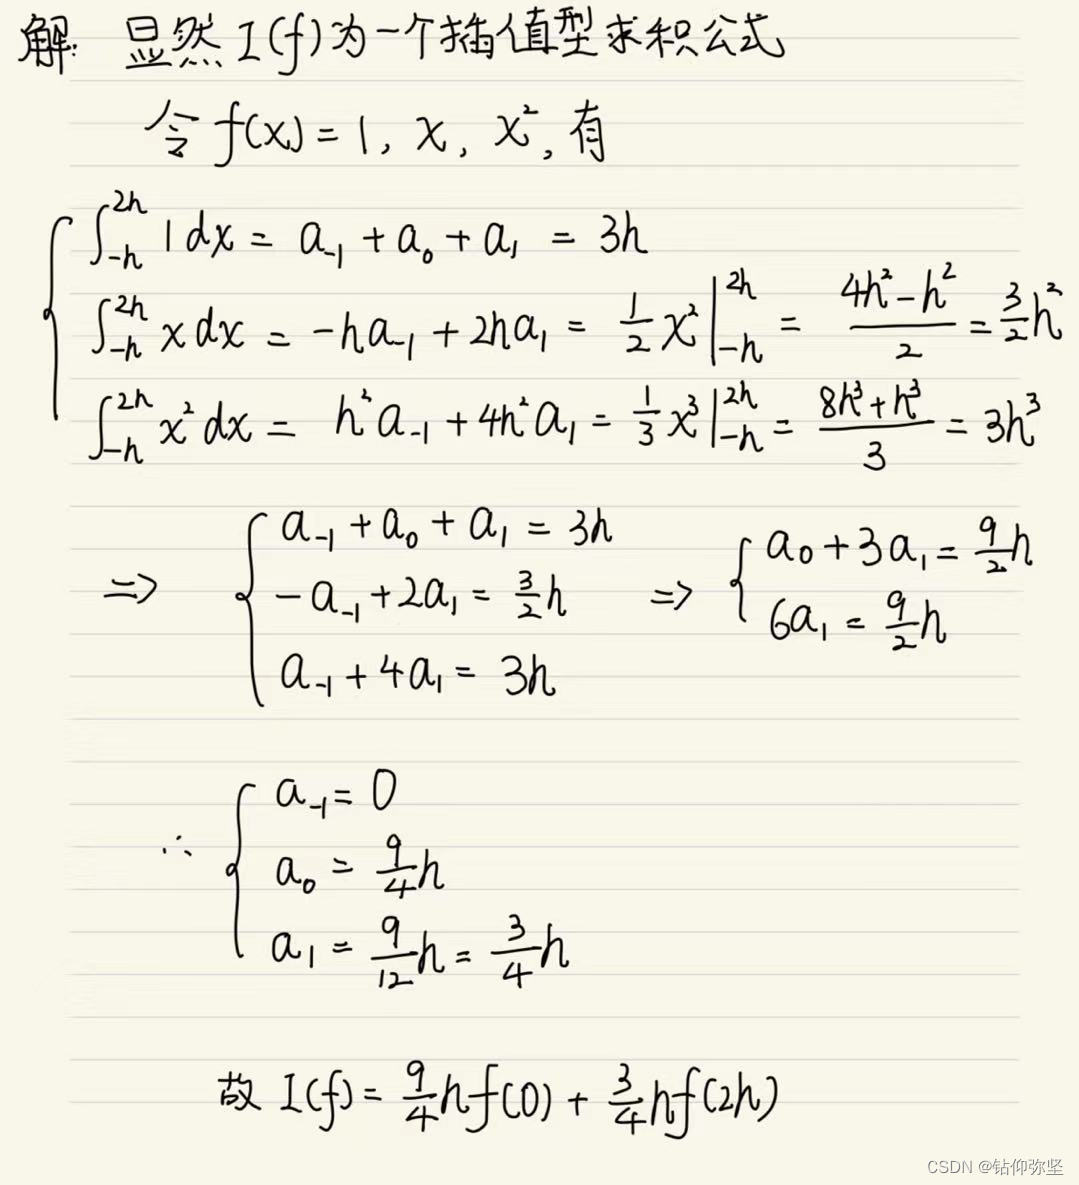 解: 显然 I(f)为一个插值型求积公式
令 f(x) = 1, x, x², 有
∫_{-h}^{2h} 1 dx = a_{-1} + a_0 + a_1 = 3h
∫_{-h}^{2h} x dx = -h a_{-1} + 2h a_1 = \frac{1}{2} x² |_{-h}^{2h} = \frac{4h² - h²}{2} = \frac{3}{2} h²
∫_{-h}^{2h} x² dx = h² a_{-1} + 4h² a_1 = \frac{1}{3} x³ |_{-h}^{2h} = \frac{8h³ + h³}{3} = 3h³
⇒ { a_{-1} + a_0 + a_1 = 3h
-a_{-1} + 2a_1 = \frac{3}{2} h
a_{-1} + 4a_1 = 3h
⇒ { a_0 + 3a_1 = \frac{9}{2} h
6a_1 = \frac{9}{2} h
∴ { a_{-1} = 0
a_0 = \frac{9}{4} h
a_1 = \frac{9}{12} h = \frac{3}{4} h
故 I(f) = \frac{9}{4} h f(0) + \frac{3}{4} h f(2h)
CSDN @钻仰弥坚